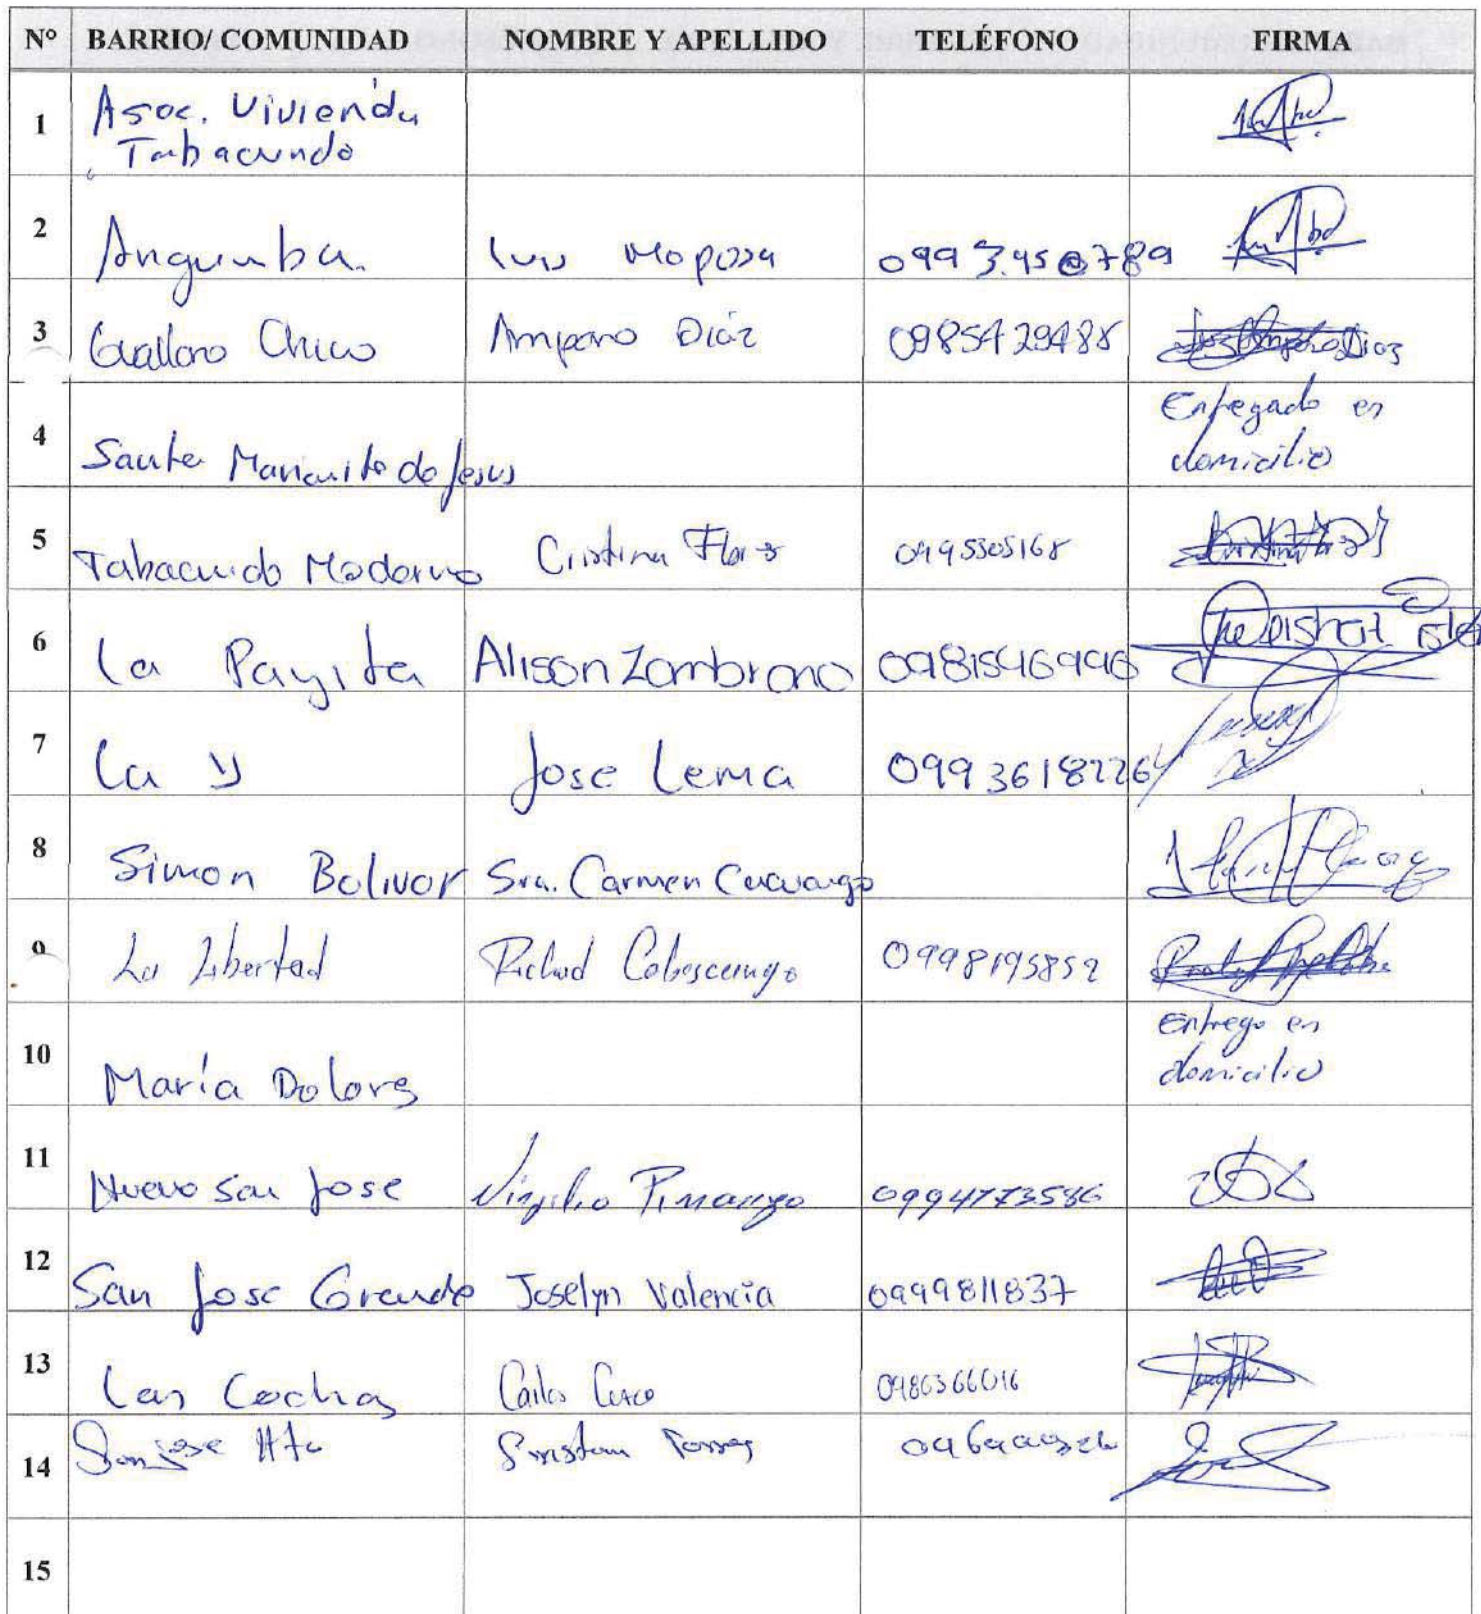 N° BARRIO/ COMUNIDAD NOMBRE Y APELLIDO TELÉFONO FIRMA
1 Asoc. Vivienda
Tabacundo
2 Angumba. Luis Moposa 0993450789
3 Guallaro Chico Amparo Diáz 0985429488 Diaz
Entregado en
4 Santa Marianita de Jesus domicilio
5 Tabacundo Moderno Cristina Flores 0995505168
6 La Payita Alison Zambrano
7 La Y Jose Lema 09936182264
8 Simon Bolivar Sra. Carmen Cacuango
9 La Libertad Richard Cabascango 0998195852
Entrego en
10 María Dolores domicilio
11 Nuevo San Jose Virgilio Pinango 0994773586
12 San Jose Grande Joselyn Valencia 0999811837
13 Las Cochas Carlos 0986366016
14 San jose Alto Torres
15